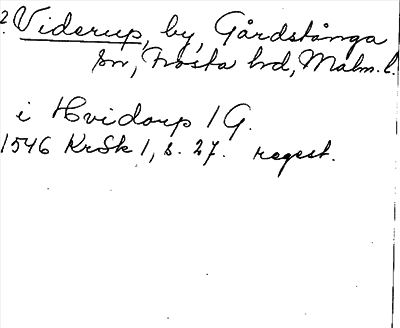 2. Viderup, by, Gårdstånga
sn, Frosta hd, Malm. l.
i Hvidorp 1 G.
1546 KrSk 1, s. 27. regest.